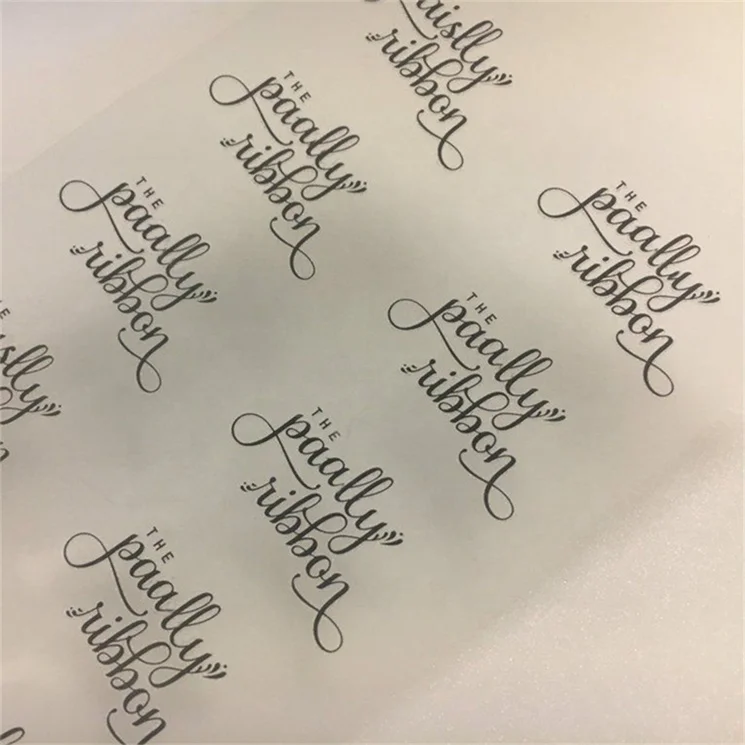 aislly
ribbon
THE
paally
ribbon
THE
paally
ribbon
THE
paally
ribbon
THE
paally
ribbon
THE
paally
ribbon
THE
paally
ribbon